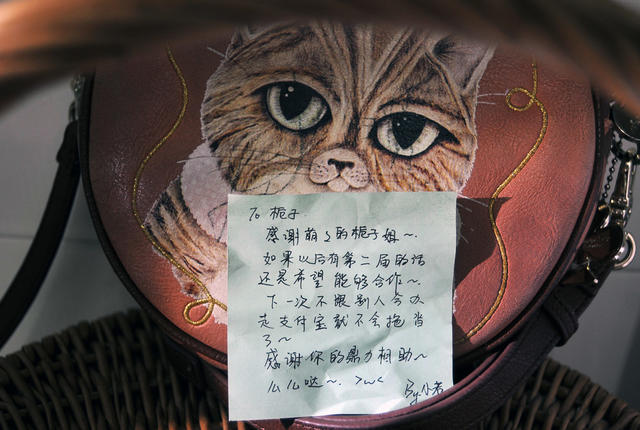 To 栀子
感谢萌々的栀子姐～.
如果以后有第二届的话
还是希望 能够合作～
下一次不跟别人合办
走支付宝就不会拖沓
了～
感谢你的鼎力相助～
么么哒～. >w<
By 小